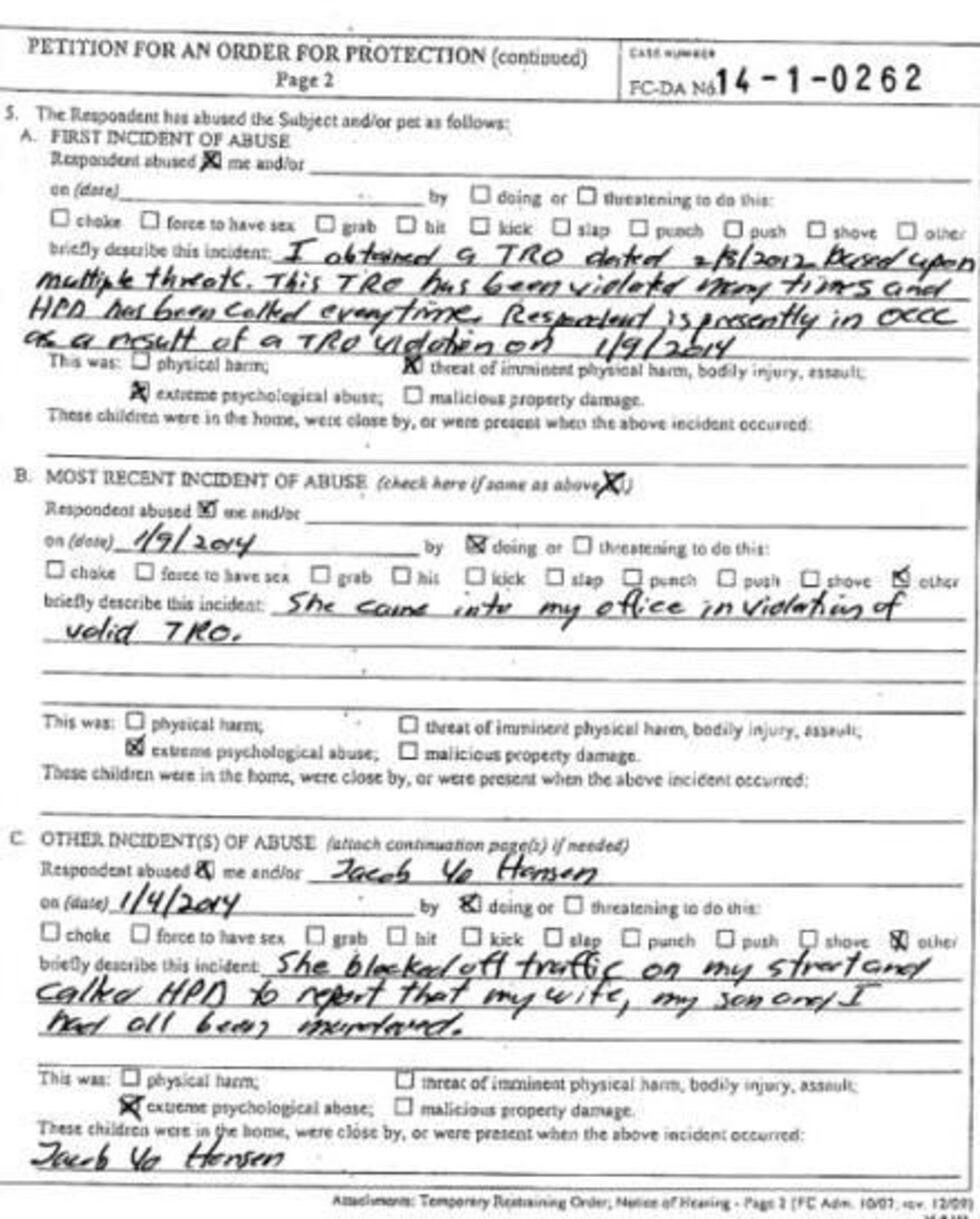 PETITION FOR AN ORDER FOR PROTECTION (continued)
Page 2
CASE NUMBER
FC-DA No. 14-1-0262
5. The Respondent has abused the Subject and/or pet as follows:
A. FIRST INCIDENT OF ABUSE
Respondent abused ☒ me and/or
on (date) by ☐ doing or ☐ threatening to do this:
☐ choke ☐ force to have sex ☐ grab ☐ hit ☐ kick ☐ slap ☐ punch ☐ push ☐ shove ☐ other
briefly describe this incident: I obtained a TRO dated 2/8/2012 based upon
multiple threats. This TRO has been violated many times and
HPD has been called everytime. Respondent is presently in OCCC
as a result of a TRO violation on 1/9/2014
This was: ☐ physical harm; ☒ threat of imminent physical harm, bodily injury, assault;
☒ extreme psychological abuse; ☐ malicious property damage.
These children were in the home, were close by, or were present when the above incident occurred:
B. MOST RECENT INCIDENT OF ABUSE (check here if same as above ☒)
Respondent abused ☒ me and/or
on (date) 1/9/2014 by ☒ doing or ☐ threatening to do this:
☐ choke ☐ force to have sex ☐ grab ☐ hit ☐ kick ☐ slap ☐ punch ☐ push ☐ shove ☒ other
briefly describe this incident: She came into my office in violation of
valid TRO.
This was: ☐ physical harm; ☐ threat of imminent physical harm, bodily injury, assault;
☒ extreme psychological abuse; ☐ malicious property damage.
These children were in the home, were close by, or were present when the above incident occurred:
C. OTHER INCIDENT(S) OF ABUSE (attach continuation page(s) if needed)
Respondent abused ☒ me and/or Jacob Yo Hansen
on (date) 1/4/2014 by ☒ doing or ☐ threatening to do this:
☐ choke ☐ force to have sex ☐ grab ☐ hit ☐ kick ☐ slap ☐ punch ☐ push ☐ shove ☒ other
briefly describe this incident: She blocked off traffic on my street and
called HPD to report that my wife, my son and I
had all been murdered.
This was: ☐ physical harm; ☐ threat of imminent physical harm, bodily injury, assault;
☒ extreme psychological abuse; ☐ malicious property damage.
These children were in the home, were close by, or were present when the above incident occurred:
Jacob Yo Hansen
Attachments: Temporary Restraining Order; Notice of Hearing - Page 2 (FC Adm. 10/07, rev. 12/09)